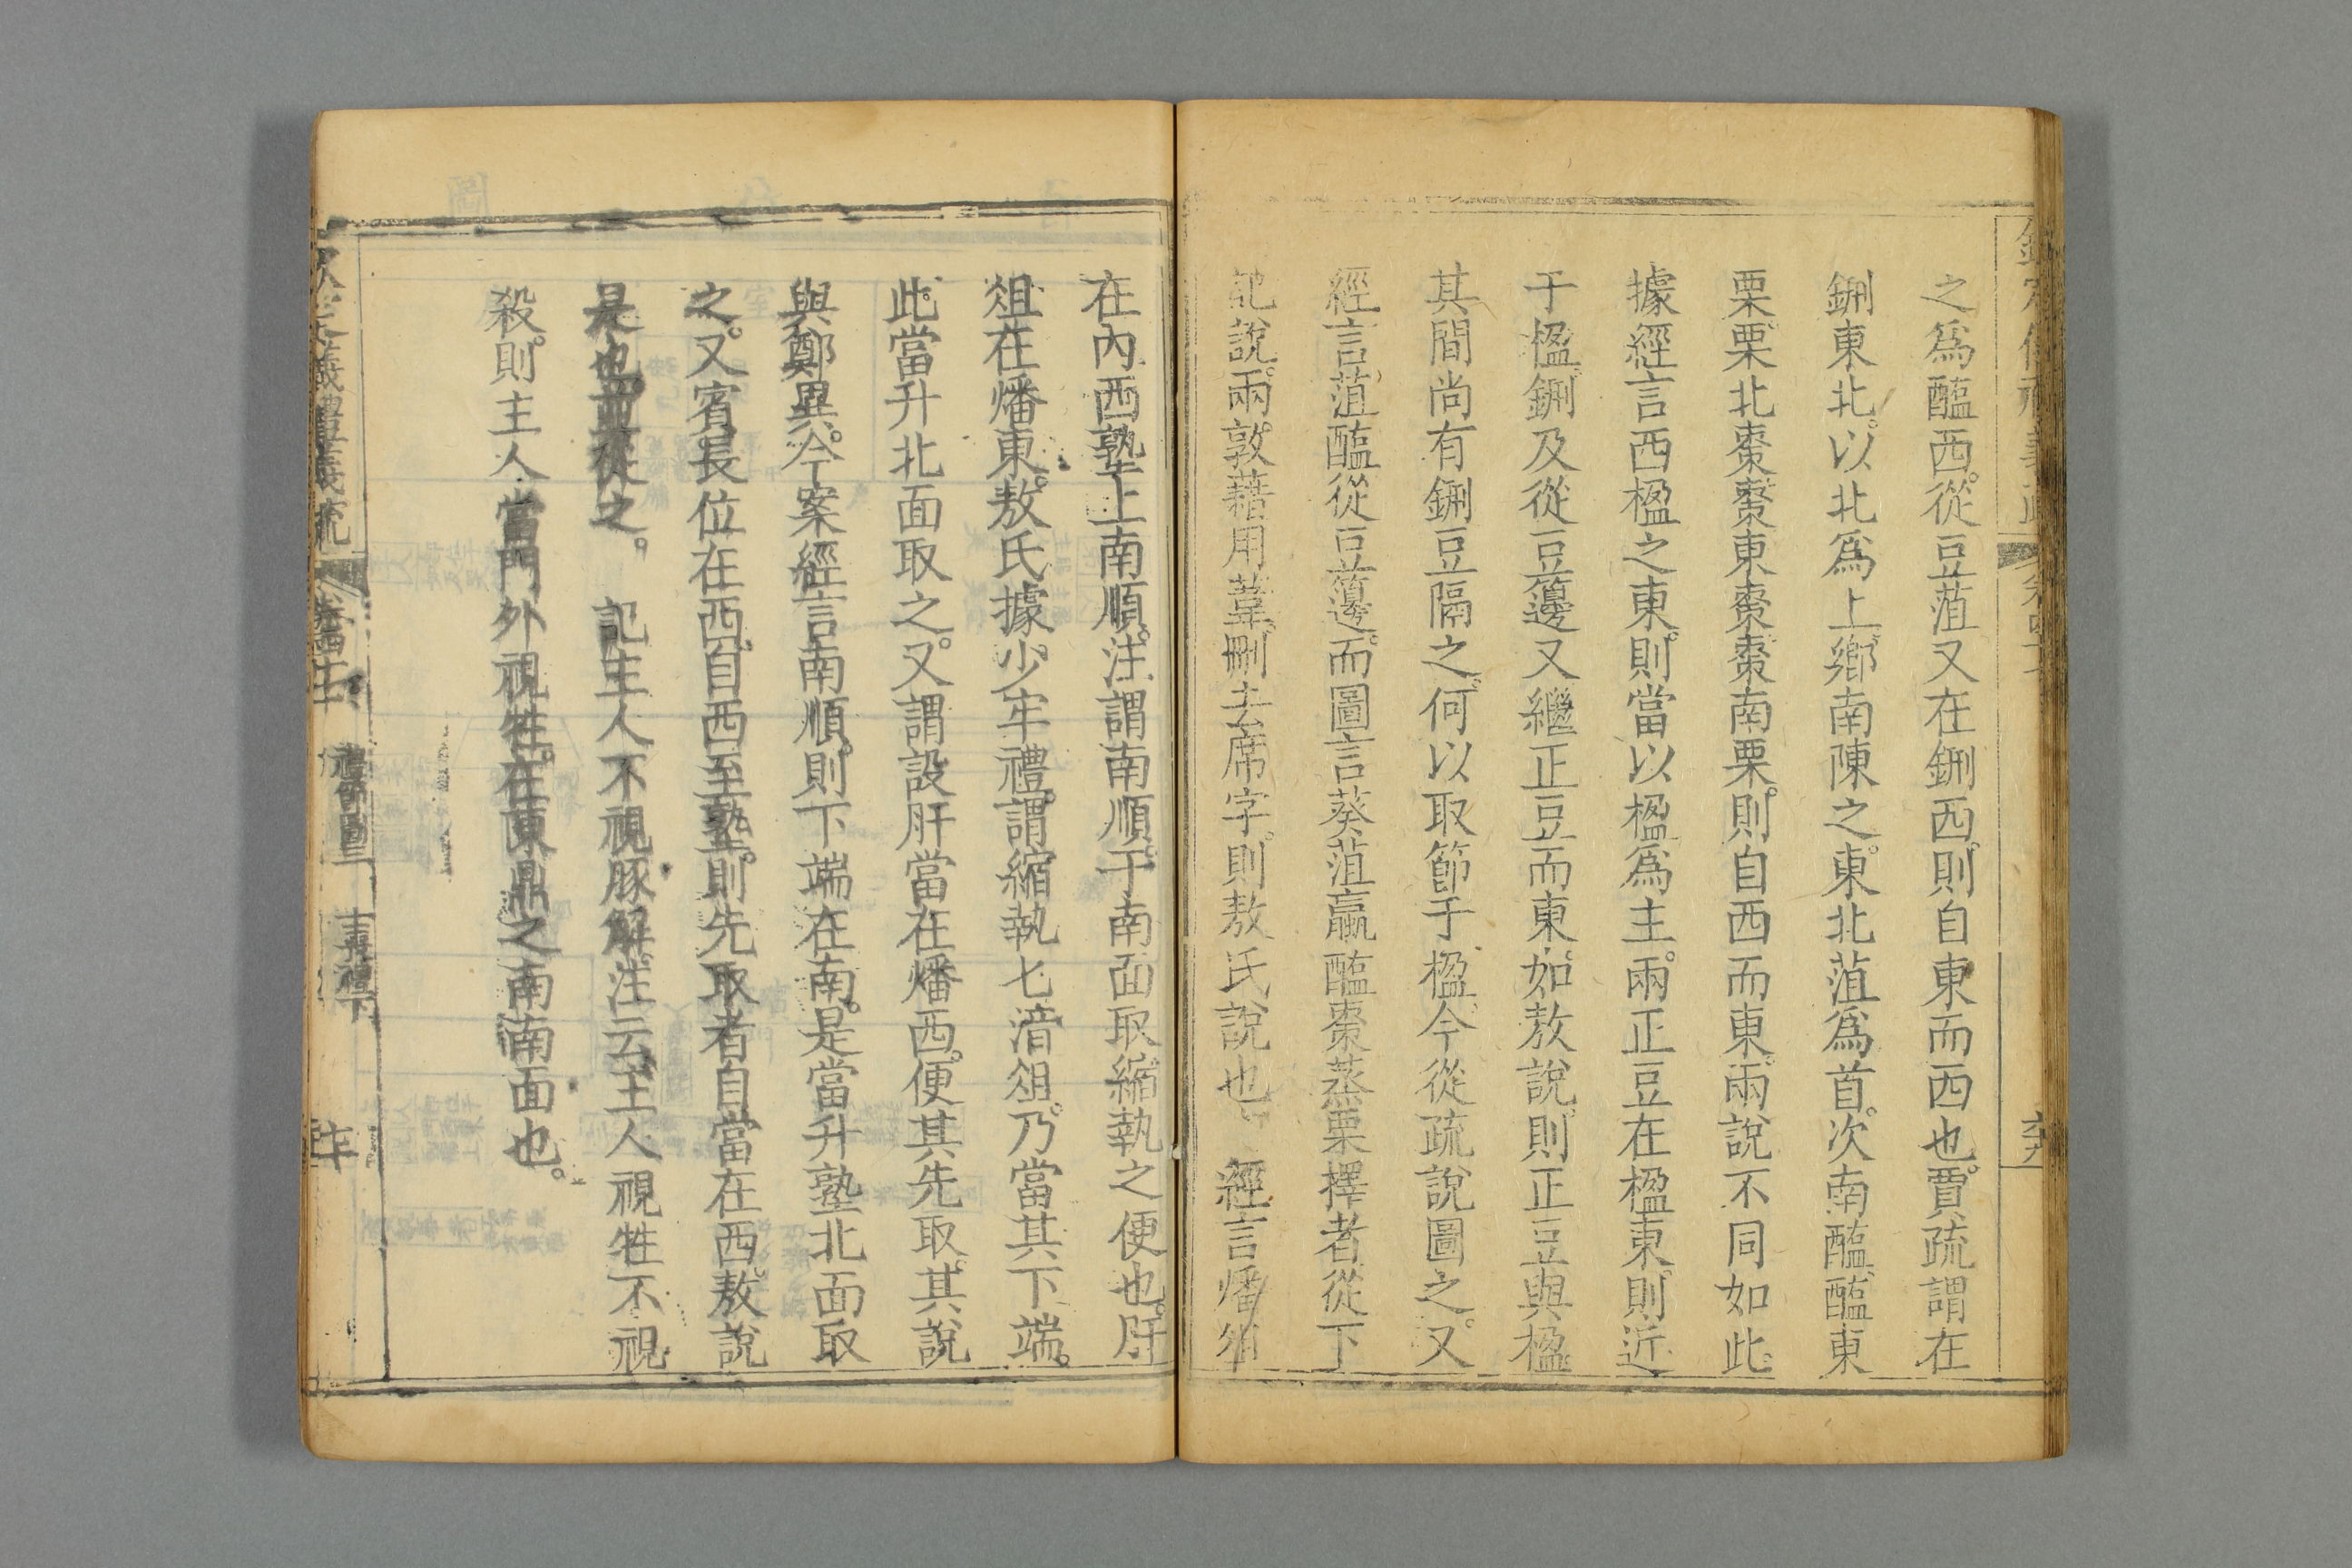 之爲醢西。從豆菹又在鉶西。則自東而西也。賈疏謂在
鉶東北。以北爲上。鄉南陳之。東北菹爲首。次南醢。醢東
栗。栗北棗。棗東棗。棗南栗。則自西而東。兩說不同如此。
據經言西楹之東。則當以楹爲主。兩正豆在楹東。則近
于楹。鉶及從豆籩又繼正豆而東。如敖說。則正豆與楹
其間尚有鉶豆隔之。何以取節于楹。今從疏說圖之。又
經言菹醢從豆籩。而圖言葵菹蠃醢棗蒸栗擇者。從下
記說。兩敦藉用萑。刪去席字。則敖氏說也。 經言燔俎
在內西塾上南順。注謂南順。于南面取縮執之便也。肝
俎在燔東。敖氏據少牢禮。謂縮執匕湇俎。乃當其下端。
此當升北面取之。又謂設肝當在燔西。便其先取。其說
與鄭異。今案經言南順。則下端在南。是當升塾北面取
之。又賓長位在西。自西至塾。則先取者自當在西。敖說
是也。 從之。 記主人不視豚解。注云主人視牲不視
殺。則主人當門外視牲。在東鼎之南南面也。
儀禮義疏 卷 禮節圖三 喜禮下